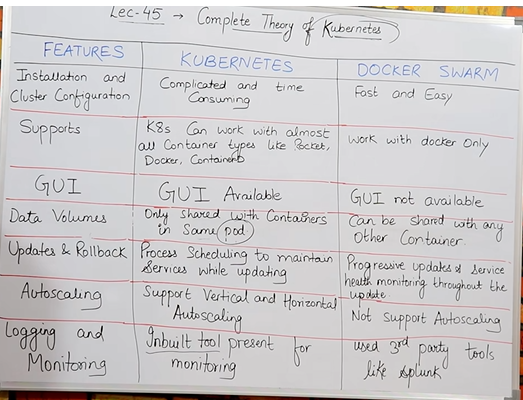 Lec-45 → Complete Theory of Kubernetes
FEATURES KUBERNETES DOCKER SWARM
Installation and Cluster Configuration
Complicated and time Consuming
Fast and Easy
Supports
K8s Can work with almost
all Container types like Rocket,
Docker, ContainerD
work with docker Only
GUI
GUI Available
GUI not available
Data Volumes
Only shared with Containers
in Same pod
Can be shared with any
Other Container.
Updates & Rollback
Process Scheduling to maintain
Services while updating
Progressive updates of Service
health monitoring throughout the
update
Autoscaling
Support Vertical and Horizontal
Autoscaling
Not Support Autoscaling
Logging and
Monitoring
Inbuilt tool present for
monitoring
used 3rd party tools
like splunk